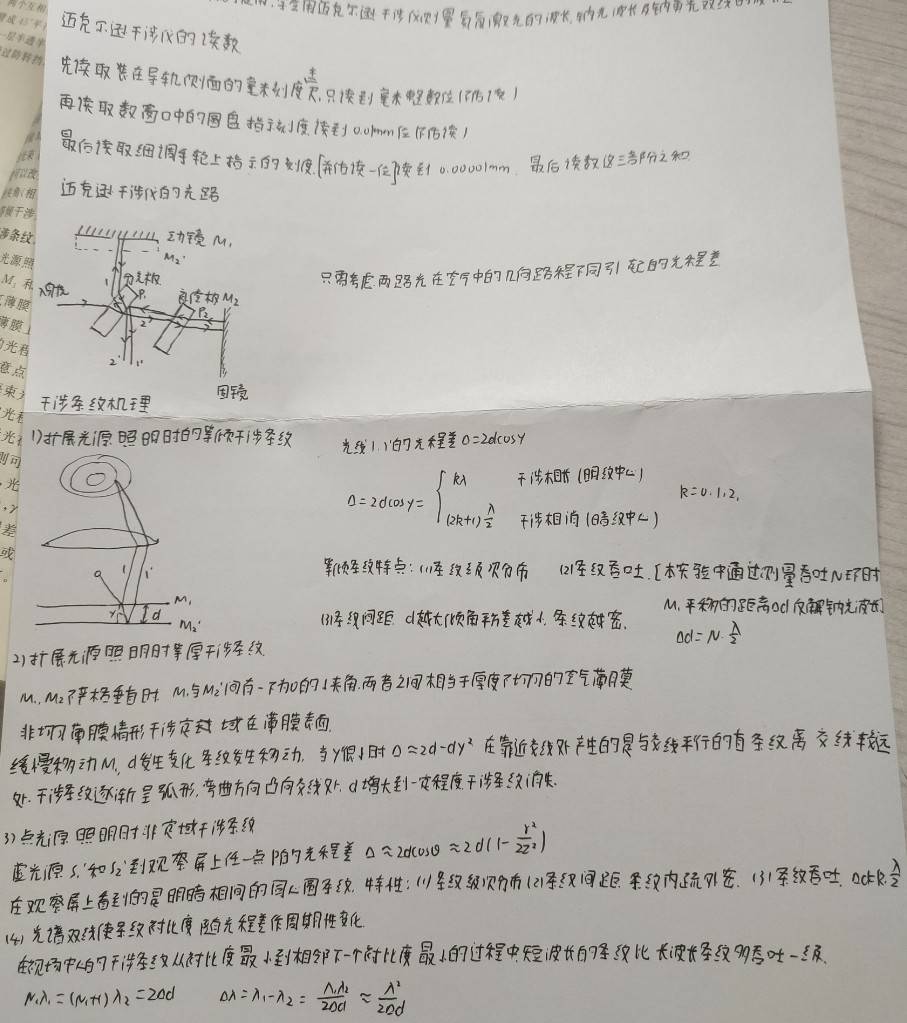 迈克尔逊干涉仪的读数
先读取装在导轨侧面的毫米刻度主尺,只读到毫米整数位(不估读)
再读取数窗口中的圆盘指示刻度,读到0.01mm位(不估读)
最后读取细调手轮上指示的刻度,[并估读一位]读到0.00001mm.最后读数这三部分之和
迈克逊干涉仪的光路
动镜 M₁
M₂'
分光板
P₁
入射光
补偿板 M₂
P₂
1 2
2' 1'
固镜
只需考虑两路光在空气中的几何路程不同引起的光程差
干涉条纹机理
1)扩展光源照明时的等倾干涉条纹
光线1.1'的光程差Δ=2dcosγ
Δ=2dcosγ= { kλ 干涉相长(明纹中心)
(2k+1)λ/2 干涉相消(暗纹中心)
k=0.1.2.
1 1'
a
γ d
M₁
M₂'
等倾条纹特点:(1)条纹级次分布 (2)条纹吞吐.[本实验中通过测量吞吐N环时
M₁平移的距离Δd 钠光波长]
(3)条纹间距 d越大,倾角 差越小,条纹越密.
Δd=N·λ/2
2)扩展光源照明时等厚干涉条纹
M₁.M₂不严格垂直时 M₁与M₂'间有一不为0的小夹角.两者之间相当于厚度不均匀的空气薄膜
非均匀薄膜情形干涉定域 域在薄膜表面.
缓慢移动M₁,d发生变化 条纹发生移动. 当γ很小时Δ≈2d-dγ² 在靠近交线处产生的是与交线平行的直条纹离交线较远
处.干涉条纹逐渐呈弧形,弯曲方向凸向交线处.d增大到一定程度干涉条纹消失.
3)点光源照明时非定域干涉条纹
虚光源S₁'和S₂'到观察屏上任一点P的光程差Δ≈2dcosθ≈2d(1-r²/2z²)
在观察屏上看到的是明暗相间的同心圆条纹.特性:(1)条纹级次分布(2)条纹间距 条纹内疏外密.(3)条纹吞吐.Δd=k·λ/2
(4)光谱双线使条纹对比度随光程差作周期性变化
在视场中心的干涉条纹从对比度最小到相邻下一个对比度最小的过程中短波长的条纹比长波长条纹多吞吐一级.
N₁λ₁=(N₁+1)λ₂=2Δd Δλ=λ₁-λ₂=λ₁λ₂/2Δd≈λ²/2Δd